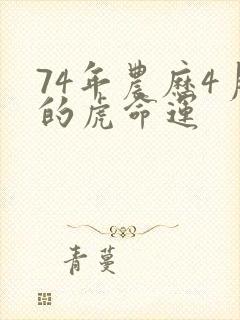 74年農历4月
的虎命運
青蔓